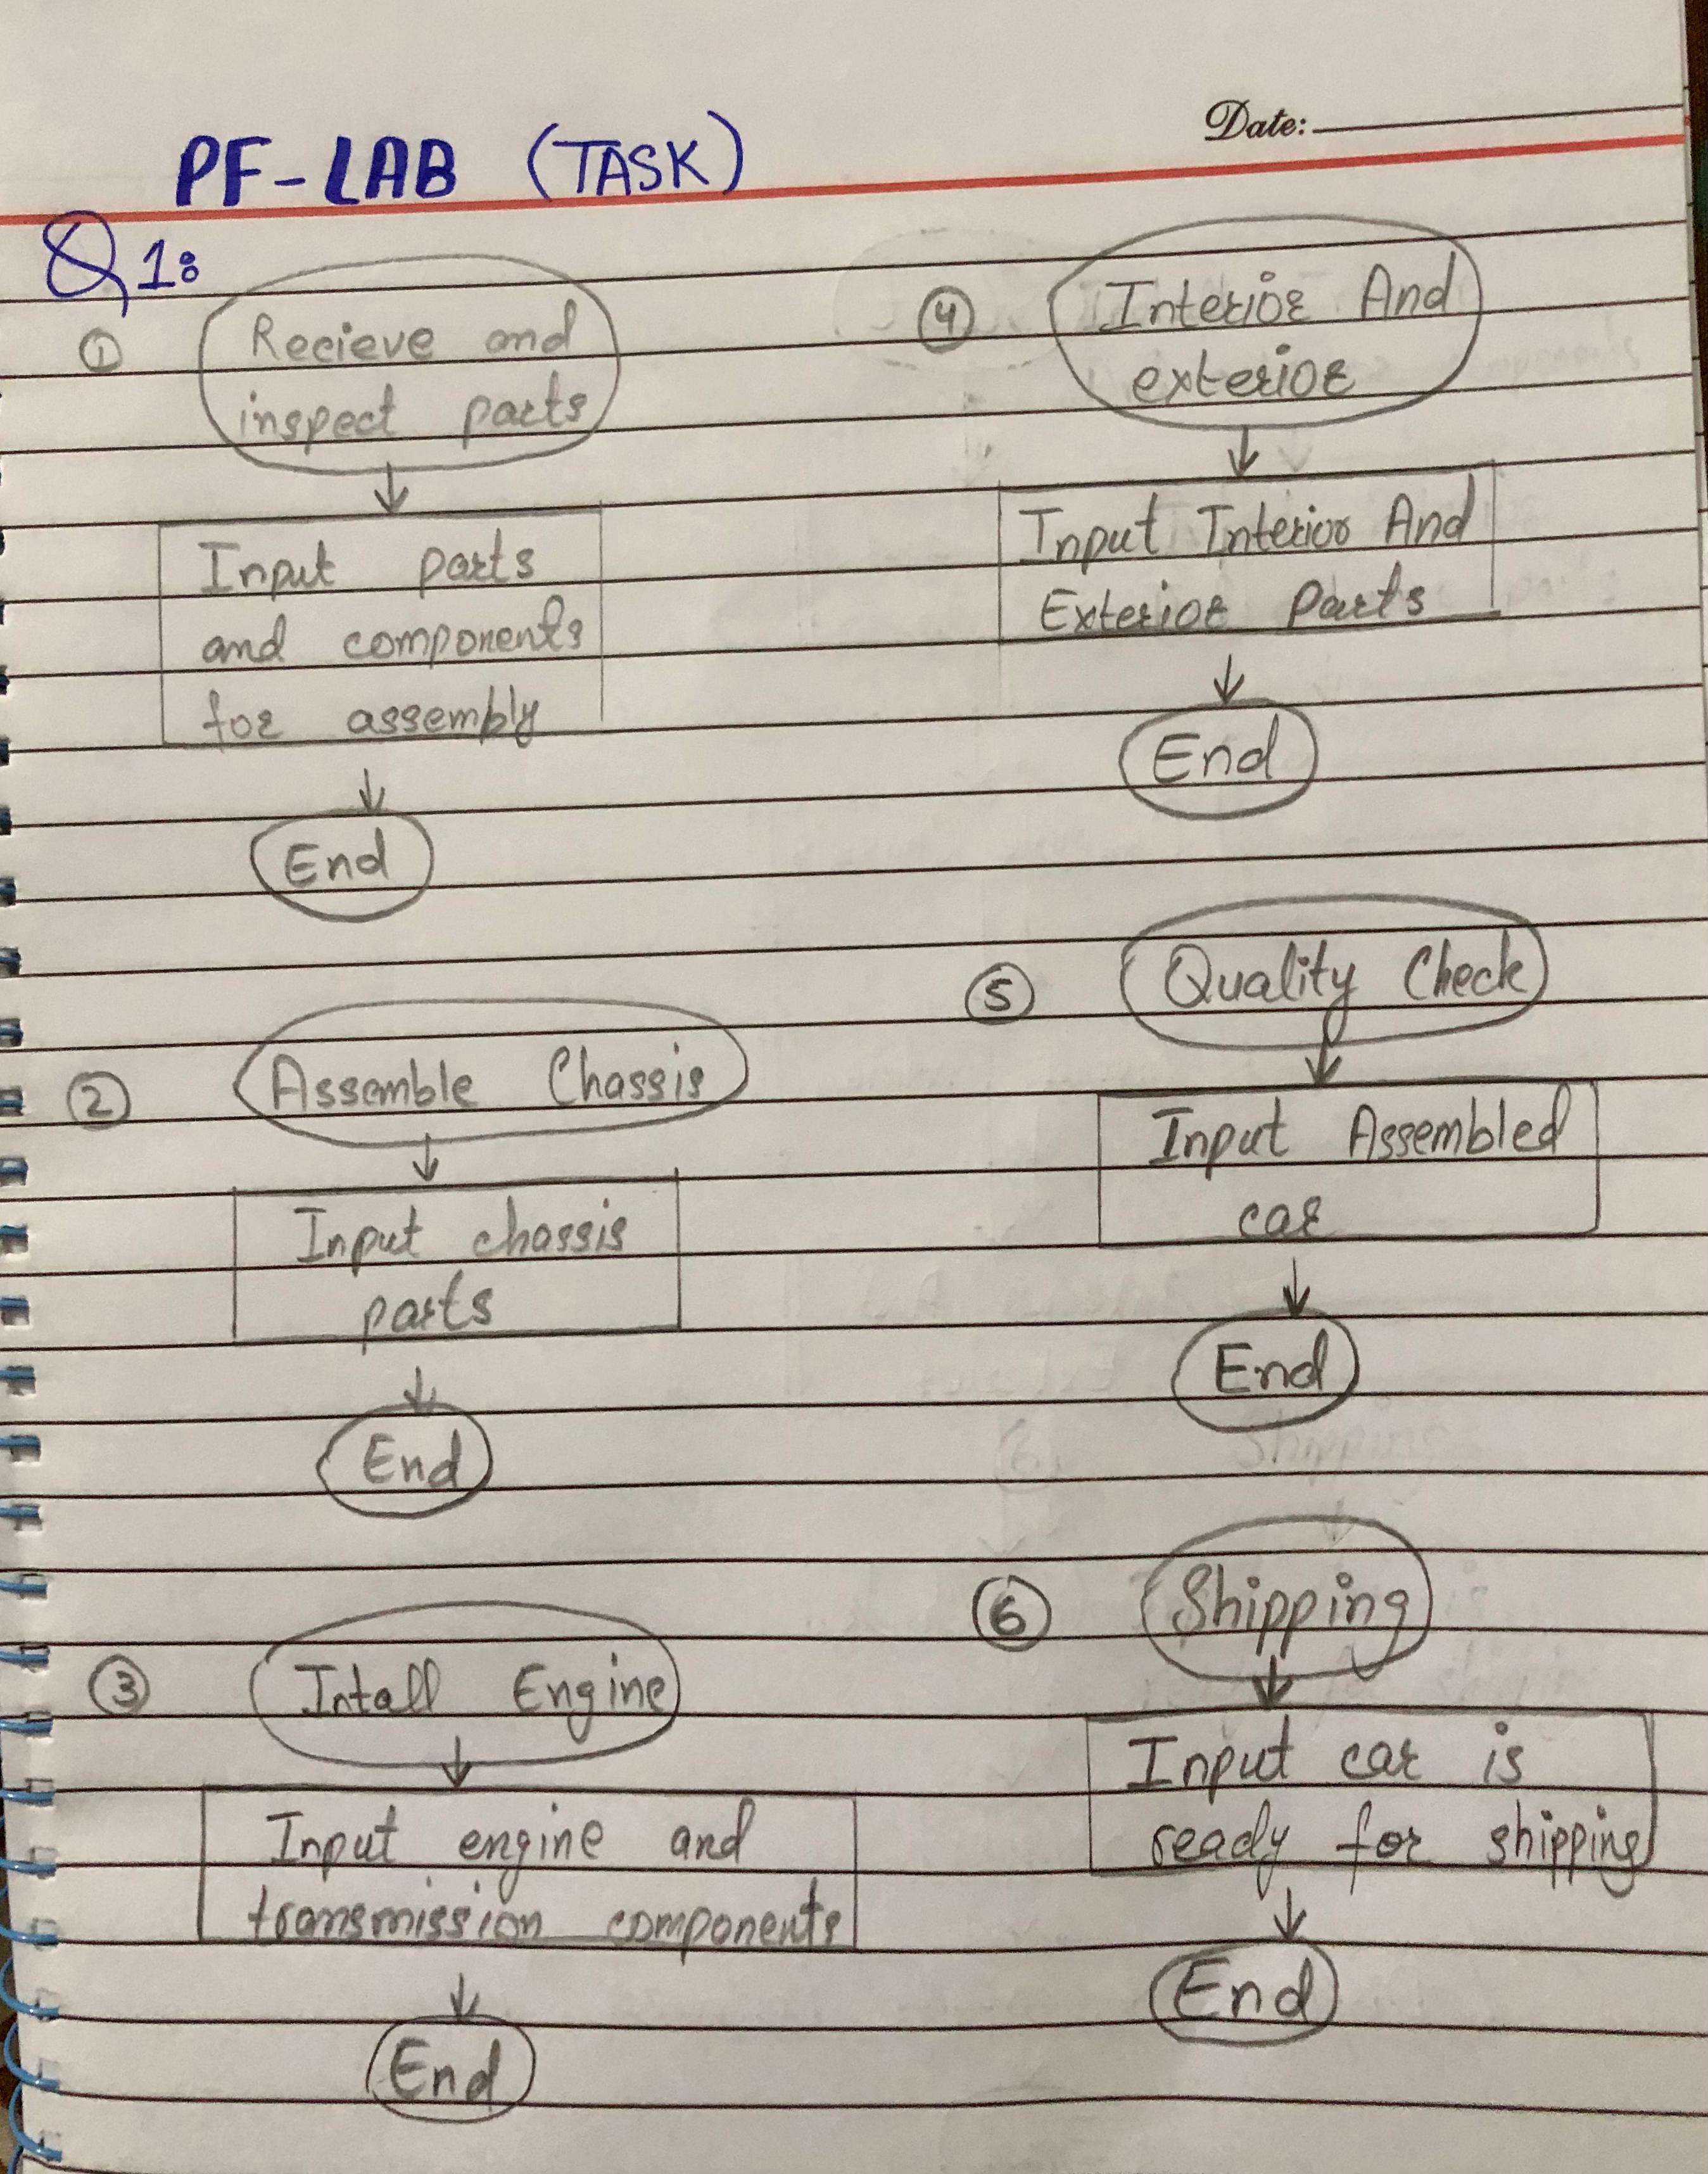 Date:
PF-LAB (TASK)
Q1:
1
Recieve and
inspect parts
Input parts
and components
for assembly
End
2
Assemble Chassis
Input chassis
parts
End
3
Intall Engine
Input engine and
transmission components
End
4
Interior And
exterior
Input Interior And
Exterior Parts
End
5
Quality Check
Input Assembled
car
End
6
Shipping
Input car is
ready for shipping
End